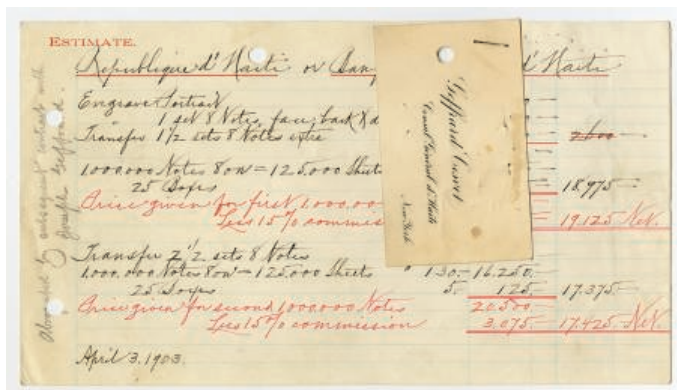 ESTIMATE.
Republique d'Haiti or Ban d'Haiti
Engrave Portrait
1 set 8 Notes, face, back & 
Transfer 1 1/2 sets 8 Notes extra 2600 —
1.000.000 Notes 8 on = 125.000 Sheets
25 Boxes 18,975 —
Price given for first 1.000.00
Less 15% commiss 19.125 Net.
Transfer 2 1/2 sets 8 Notes
1.000.000 Notes 8 on = 125.000 Sheets " 130.- 16.250.-
25 Boxes 5.- 125.- 17.375.-
Price given for second 1000000 Notes 20.500.-
Less 15% commission 3.075.- 17.425. Net.
April 3. 1903.
Geffrard Cesvet
Consul Général d'Haïti
New-York
subsequent contract with